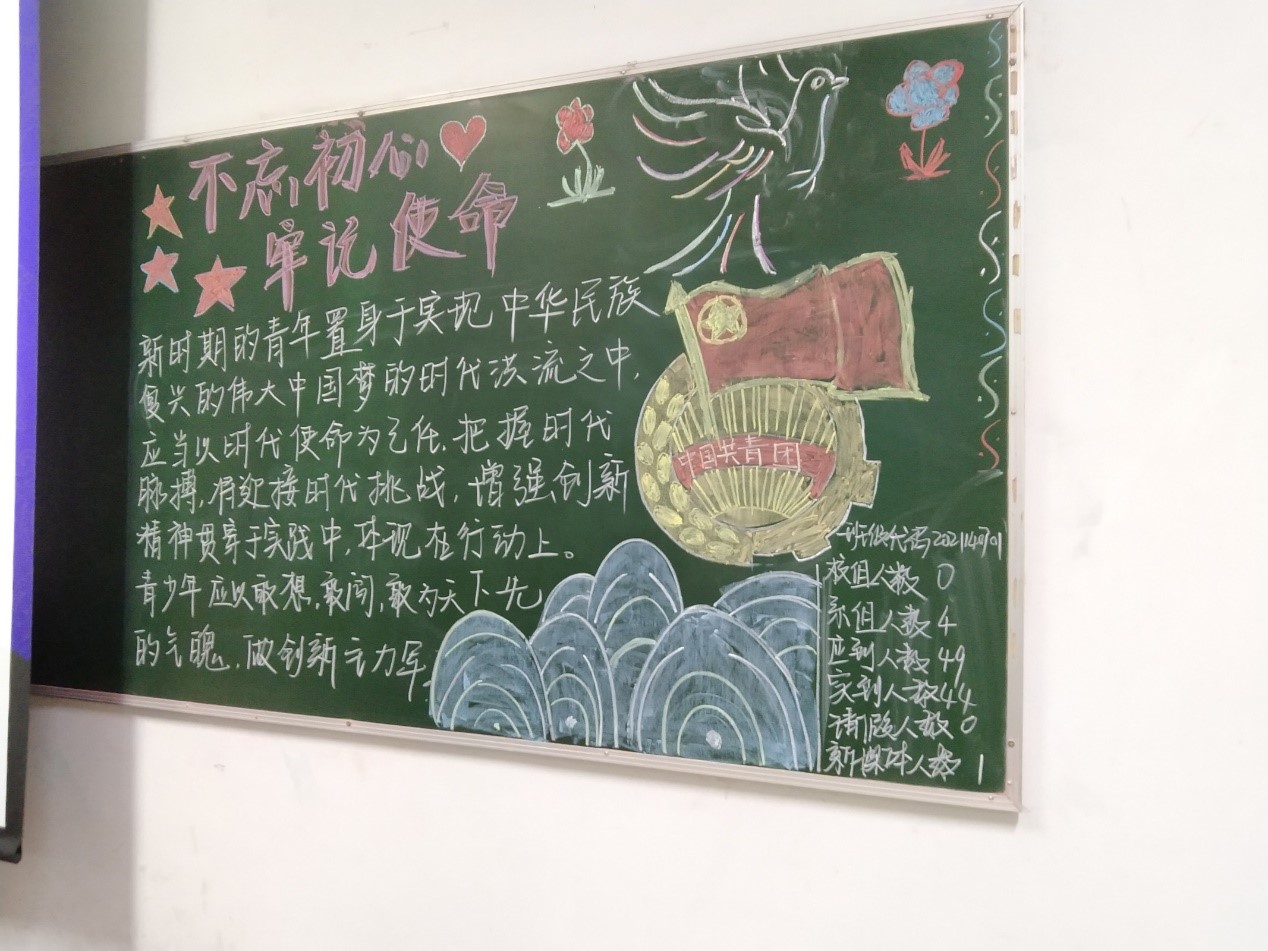 不忘初心
牢记使命
新时期的青年置身于实现中华民族
复兴的伟大中国梦的时代洪流之中,
应当以时代使命为己任,把握时代
脉搏,有迎接时代挑战,增强创新
精神贯穿于实践中,体现在行动上。
青少年应以敢想,敢闯,敢为天下先
的气魄,做创新主力军,
中国共青团
班级代码2021140701
校组人数 0
系组人数 4
应到人数 49
实到人数 44
请假人数 0
人数 1